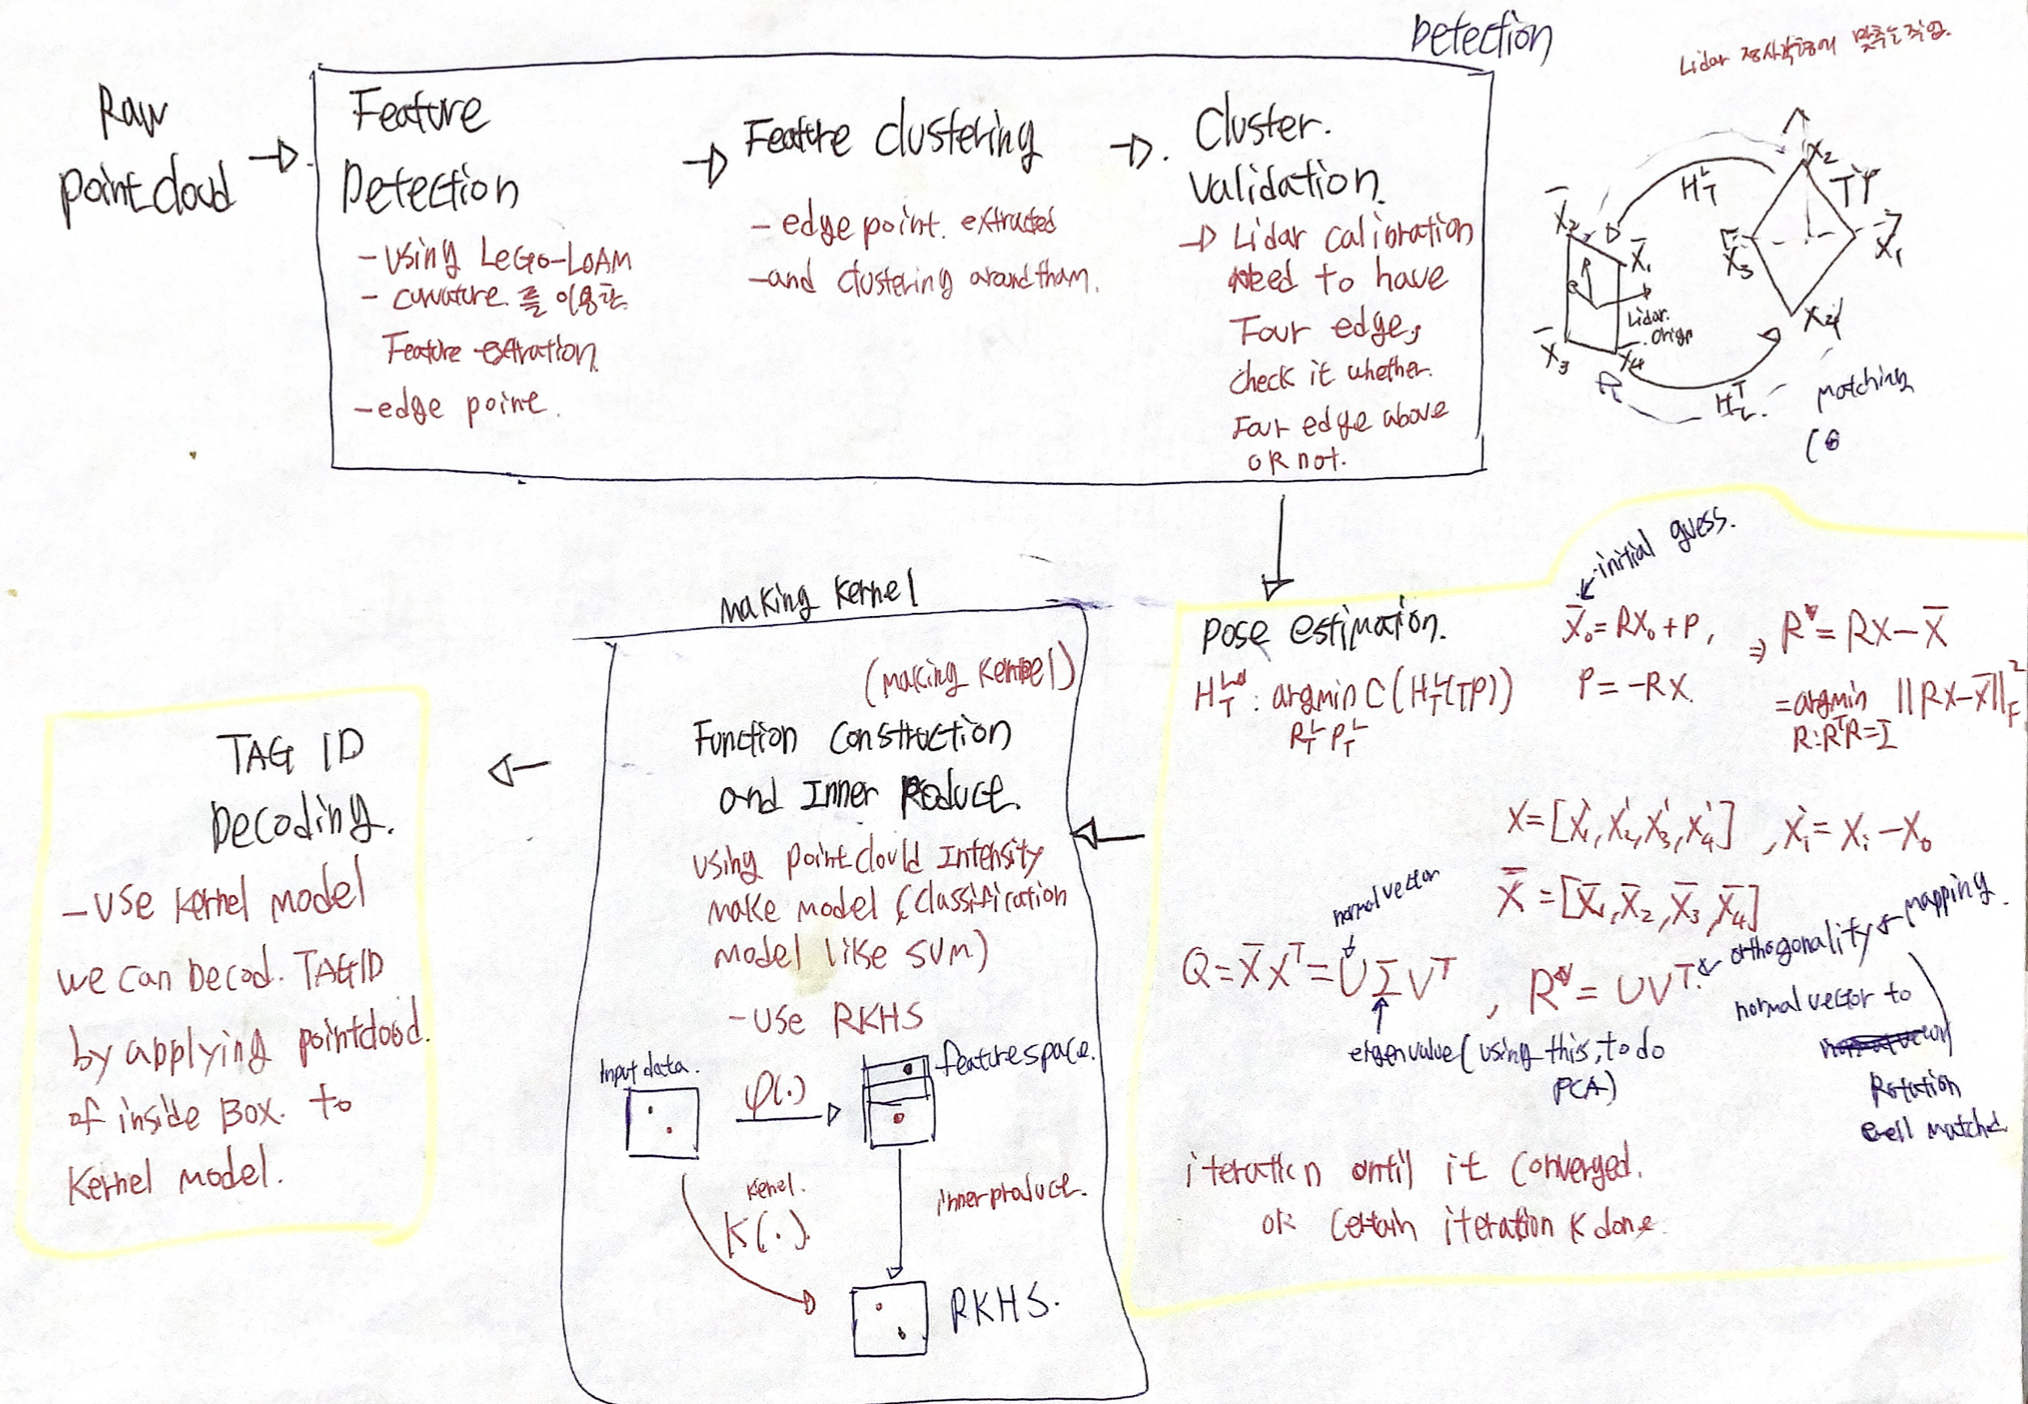 Detection
Lidar 정사각형에 맞추는 작업.
Raw
point cloud
Feature
Detection
- Using LeGO-LOAM
- curvature를 이용한
Feature extration
- edge point.
Feature clustering
- edge point. extracted
- and clustering around tham.
Cluster.
validation.
Lidar calibration
need to have
Four edge,
check it whether.
Four edge above
OR not.
H_T^L
X_2
TP
X̄_2
X̄_1
X_3
X_1
Lidar.
Origin
X̄_3
X̄_4
X_4
H_L^T
matching
initial guess.
Pose estimation.
X̄_0 = RX_0 + P,
⇒ R* = RX - X̄
H_T^L : argmin C(H_T^L(TP))
R_T^L P_T^L
P = -RX.
= argmin ||RX-X̄||_F^2
R:R^TR=I
X = [X'_1, X'_2, X'_3, X'_4] , X'_i = X_i - X_0
X̄ = [X̄_1, X̄_2, X̄_3, X̄_4]
normal vector
Q = X̄X^T = UΣV^T , R* = UV^T.
orthogonality ← mapping.
normal vector to
Rotation
matched
eigen value (using this, to do
PCA)
iteration until it converged.
OR certain iteration K done.
making kernel
(making kernel)
Function Construction
and Inner Produce.
using pointclould Intensity
make model (classification
model like SVM)
- USE RKHS
Input data.
φ(.)
feature space.
kernel.
K(.)
inner produce.
RKHS.
TAG ID
Decoding.
- USE Kernel model
we can Decod. TAGID
by applying pointcloud.
of inside Box. to
Kernel model.